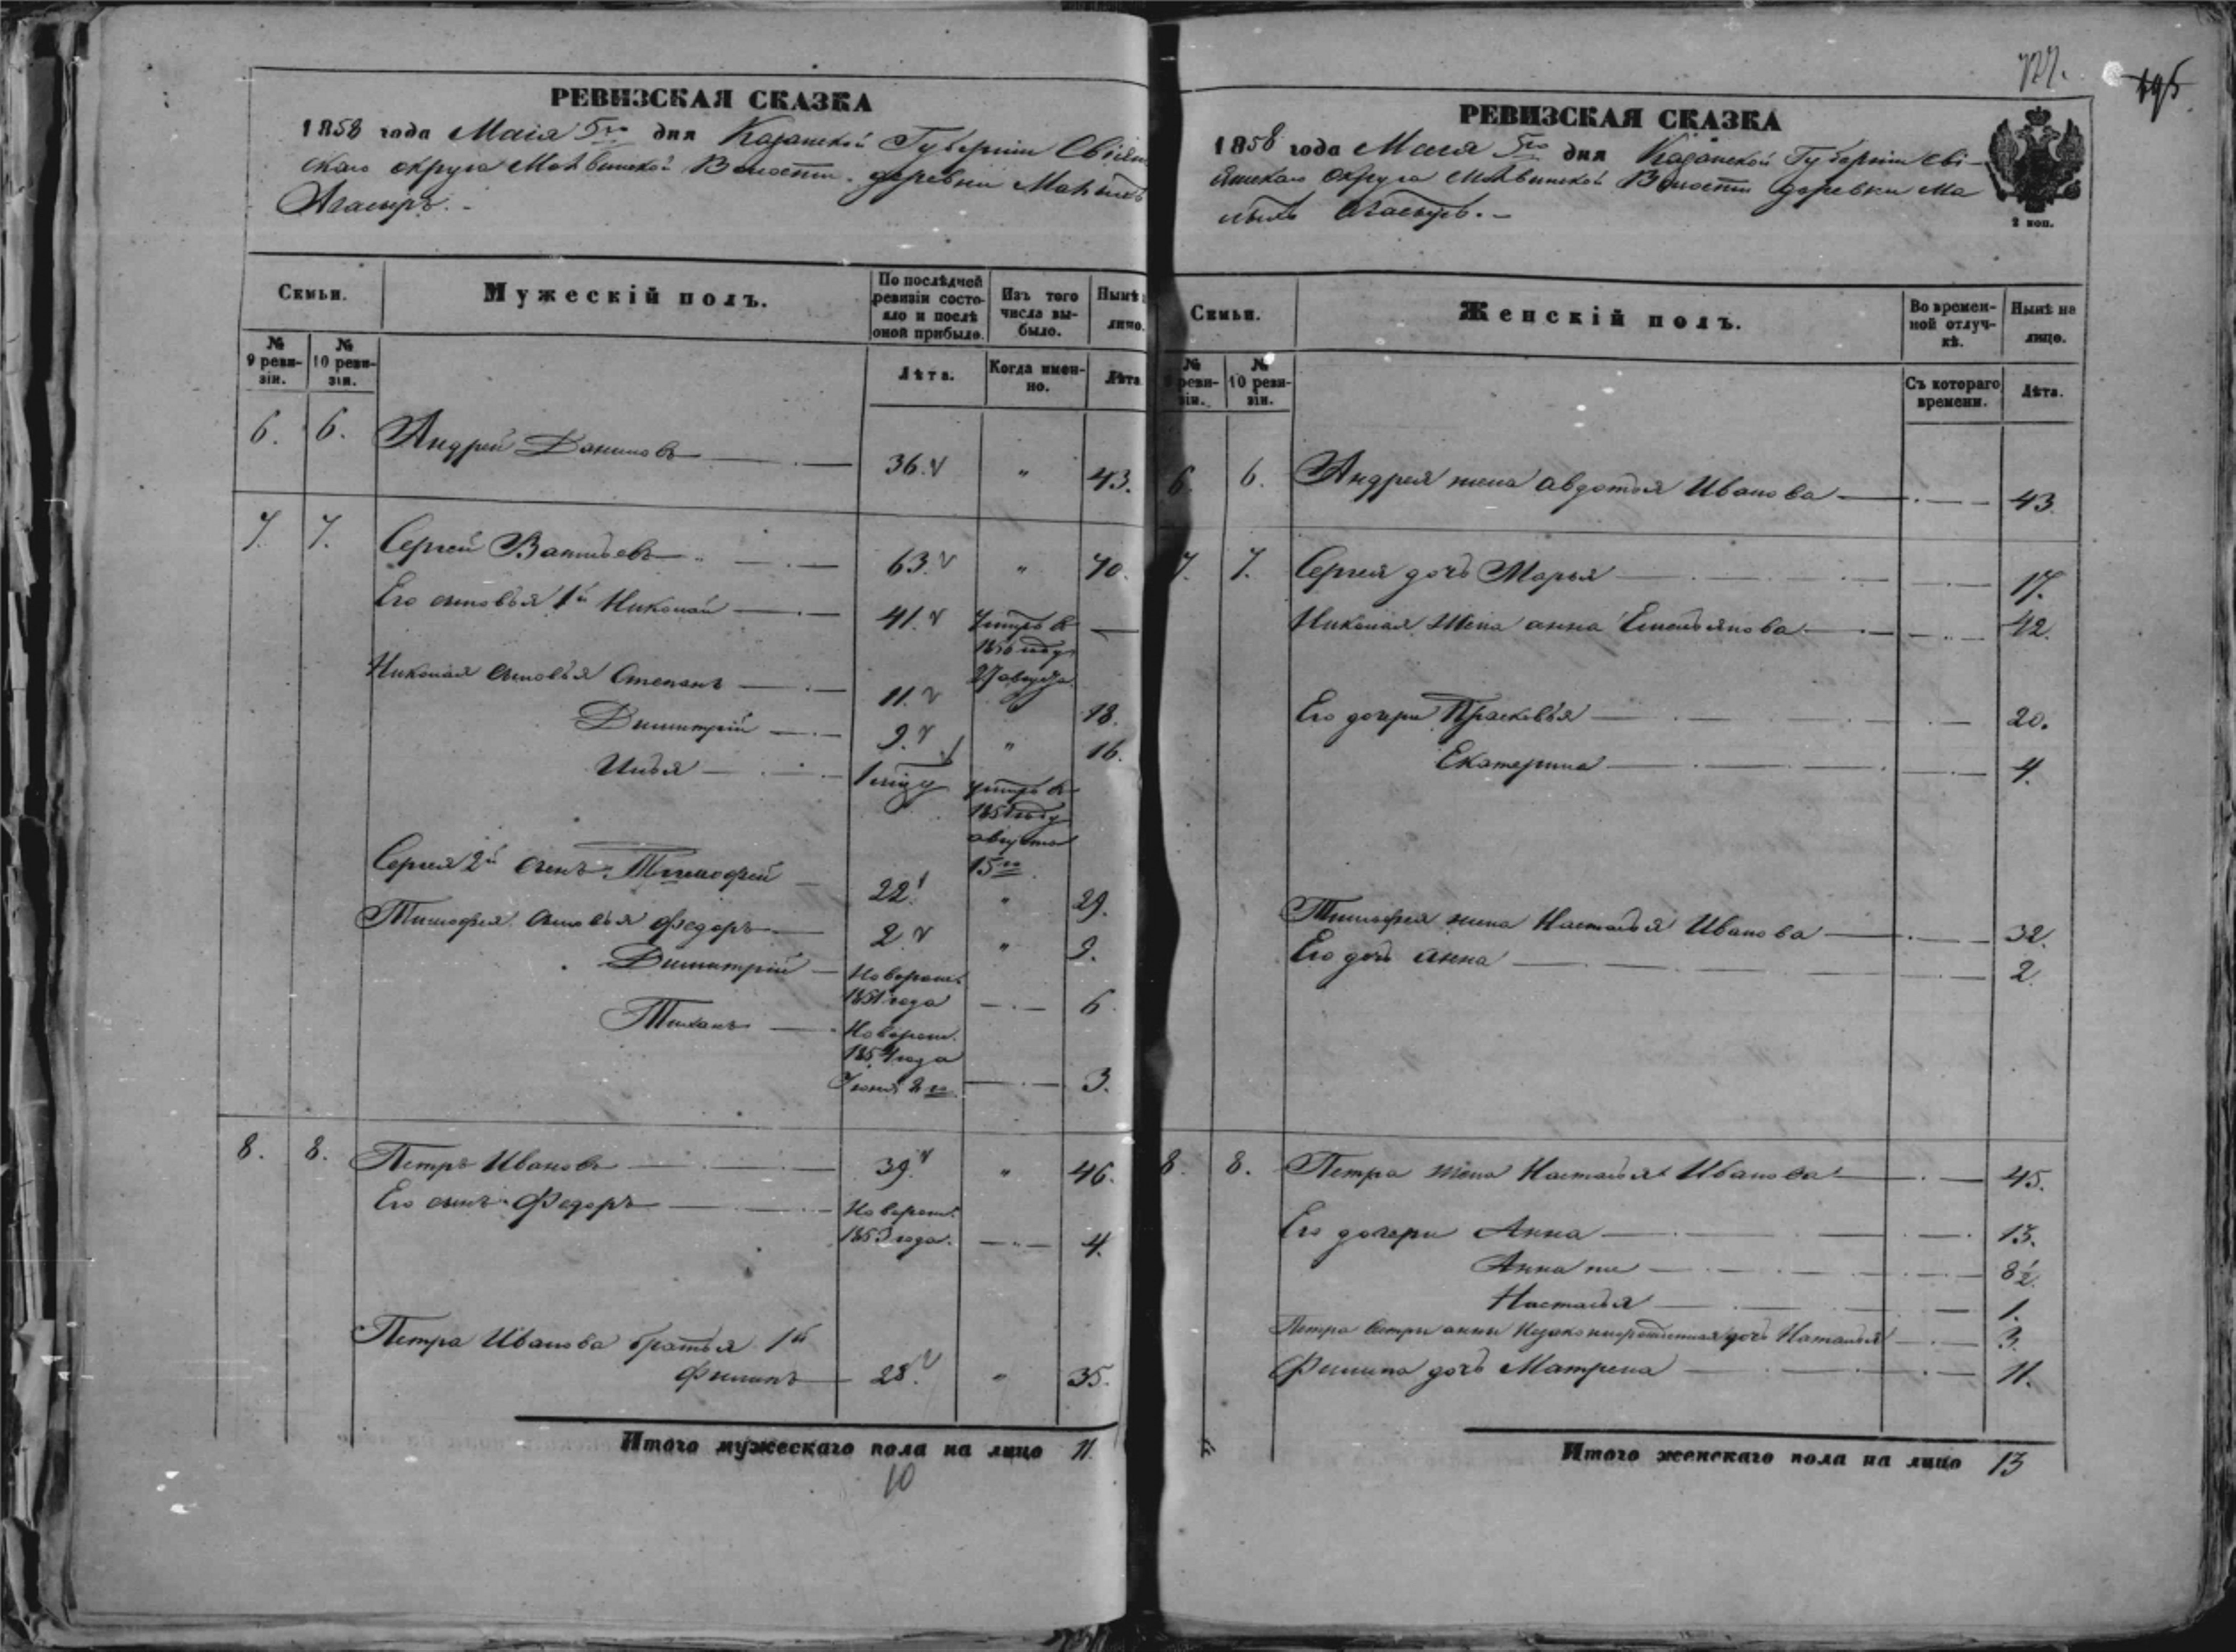 РЕВИЗСКАЯ СКАЗКА
1858 года Маія 5го дня Казанской Губерніи Свіяж
скаго округа Волости деревни Малыхъ
Скмьи.
Мужескій полъ.
По послѣдней ревизіи состояло и послѣ оной прибыло.
Изъ того числа выбыло.
Нынѣ
лицо.
№ 9 реви-зіи.
№ 10 реви-зіи.
Лѣта.
Когда имен-но.
Лѣта
6. 6. Андрей Даниловъ 36. " 43.
7. 7. Сергей Васильевъ 63. " 70.
Его сыновья 1й Николай 41. Умеръ въ —
1856 году
27 августа
Николая сыновья Степанъ 11. 18.
Димитрій 9. " 16.
Илья 1 Умеръ въ
году
августа
15го
Сергея 2й сынъ Тимофей 22. " 29.
Тимофея сыновья Федоръ 2. " 9.
ДимитрійНоворож.
1851 года 6
Тихонъ Новорож.
1854 года
Іюня 2го 3.
8. 8. Петръ Ивановъ 39. " 46.
Его сынъ Федоръ Новорож.
1853 года. 4.
Петра Иванова братья 1й
Филипъ 28. " 35.
Итого мужескаго пола на лицо 11.
10
195
РЕВИЗСКАЯ СКАЗКА
1858 года Маія 5го дня Казанской Губерніи Сві-
яжскаго округа Волости деревни Ма
лыхъ
2 коп.
Скмьи.
Женскій полъ.
Во времен-ной отлуч-кѣ.
Нынѣ на лицо.
№ 9 реви-зіи.
№ 10 реви-зіи.
Съ котораго времени.
Лѣта.
6. 6. Андрея жена Авдотья Иванова 43.
7. 7. Сергея дочь Марья 17.
Николая жена Анна Емельянова 42.
Его дочери Прасковья 20.
Екатерина 4.
Тимофея жена Настасья Иванова 32.
Его дочь Анна 2.
8. 8. Петра жена Настасья Иванова 45.
Его дочери Анна 13.
Анна же 8½.
Настасья 1.
Петра сестры Анны незаконнорожденная дочь Наталья 3.
Филипа дочь Матрена 11.
Итого женскаго пола на лицо 13